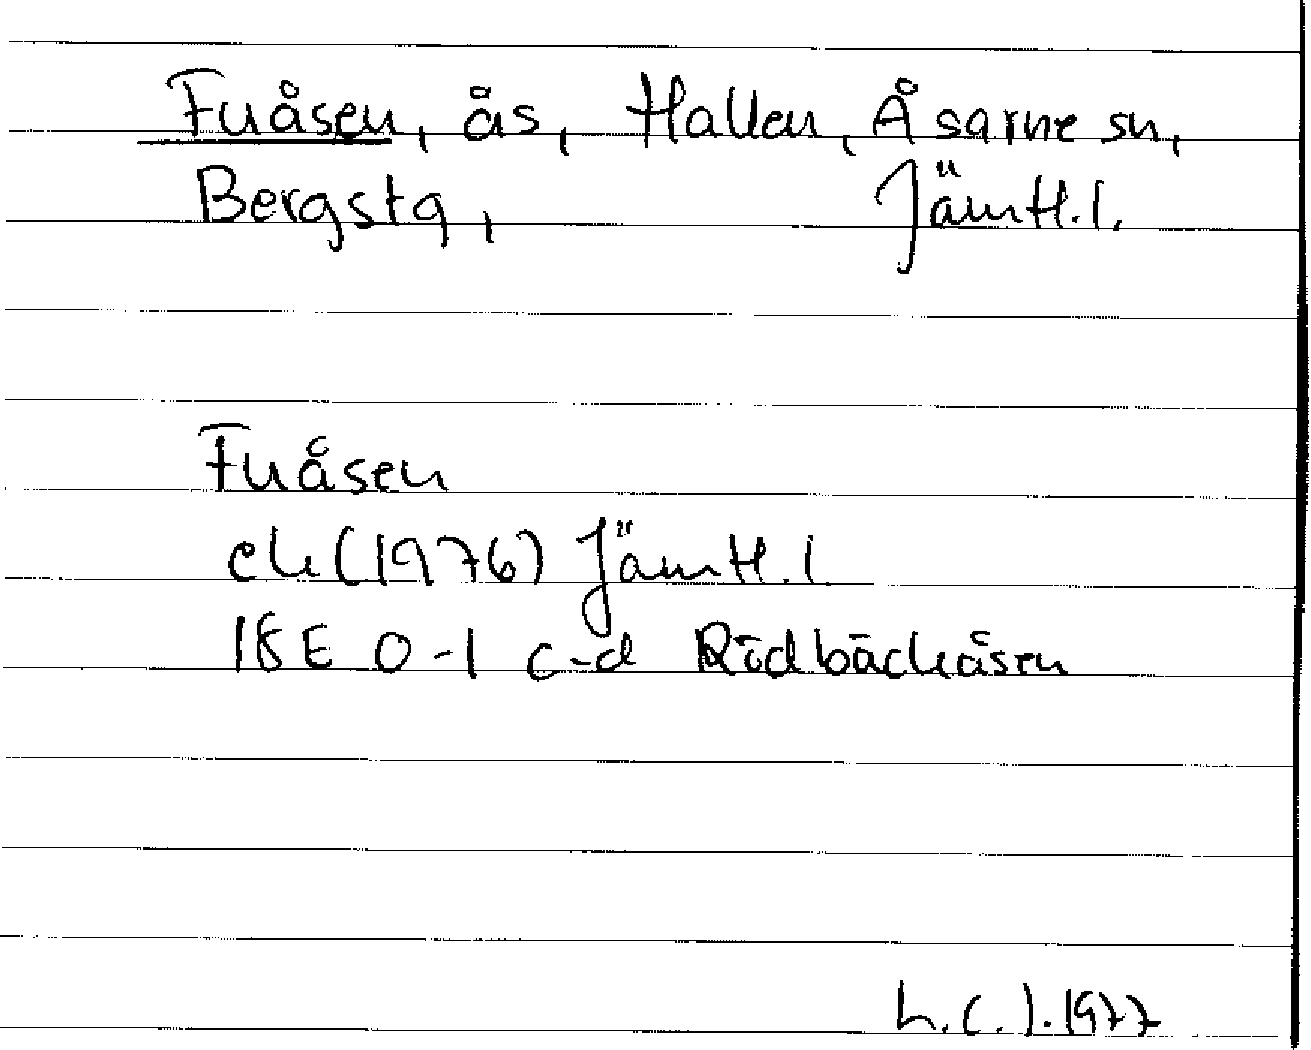 Fuåsen, ås, Hallen, Åsarne sn,
Bergstg, Jämtl. l.
Fuåsen
ek (1976) Jämtl. l.
18E 0-1 c-d Rödbäckåsen
L.C.J. 1977